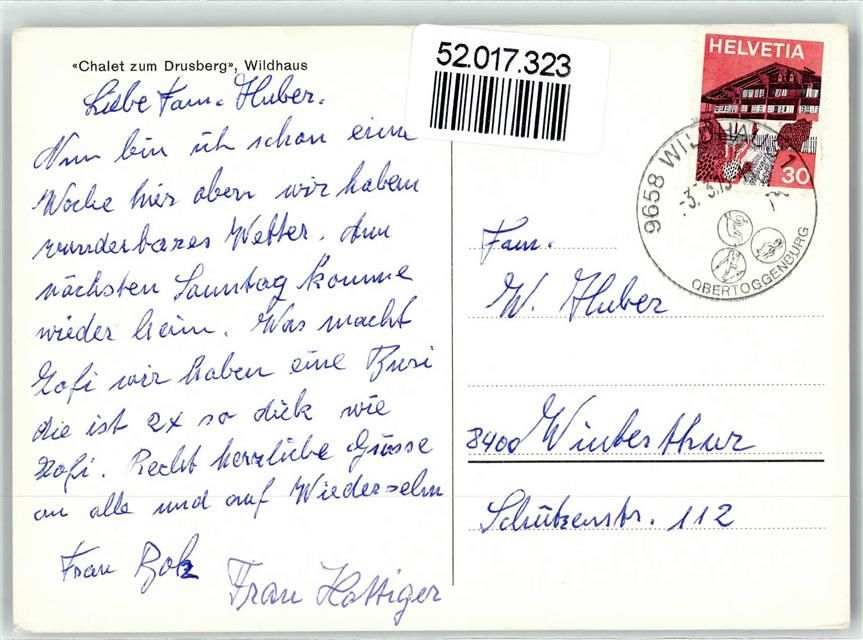 «Chalet zum Drusberg», Wildhaus
Liebe Fam. Huber.
Nun bin ich schon eine
Woche hier oben wir haben
wunderbares Wetter. Am
nächsten Sonntag komme
wieder heim. Was macht
Zofi wir haben eine Busi
die ist 2x so dick wie
Zofi. Recht herzliche Grüsse
an alle und auf Wiedersehn
Frau Bolz
Frau Hottiger
52.017.323
HELVETIA
30
9658 WILDHAUS 1
-3.-3.75
OBERTOGGENBURG
Fam.
W. Huber
8400 Winterthur
Schützenstr. 112